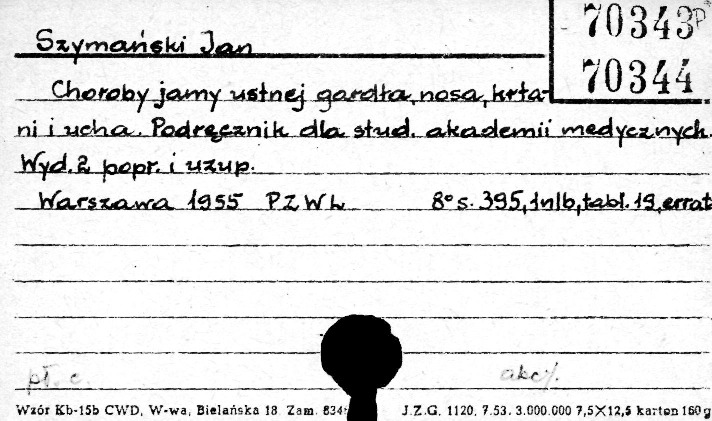 70343 P
Szymański Jan
70344
Choroby jamy ustnej gardła, nosa, krta-
ni i ucha. Podręcznik dla stud. akademii medycznych.
Wyd. 2 popr. i uzup.
Warszawa 1955 PZWL 8° s. 395, 1nlb, tabl. 19, errat
pł. c. akc.
Wzór Kb-15b CWD, W-wa, Bielańska 18. Zam. 834 J.Z.G. 1120. 7.53. 3.000.000 7,5×12,5 karton 160 g